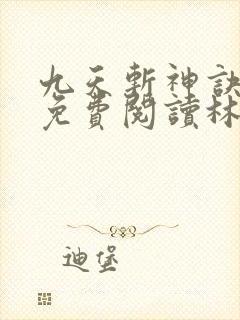 九天斬神訣
免費閱讀林
迪堡